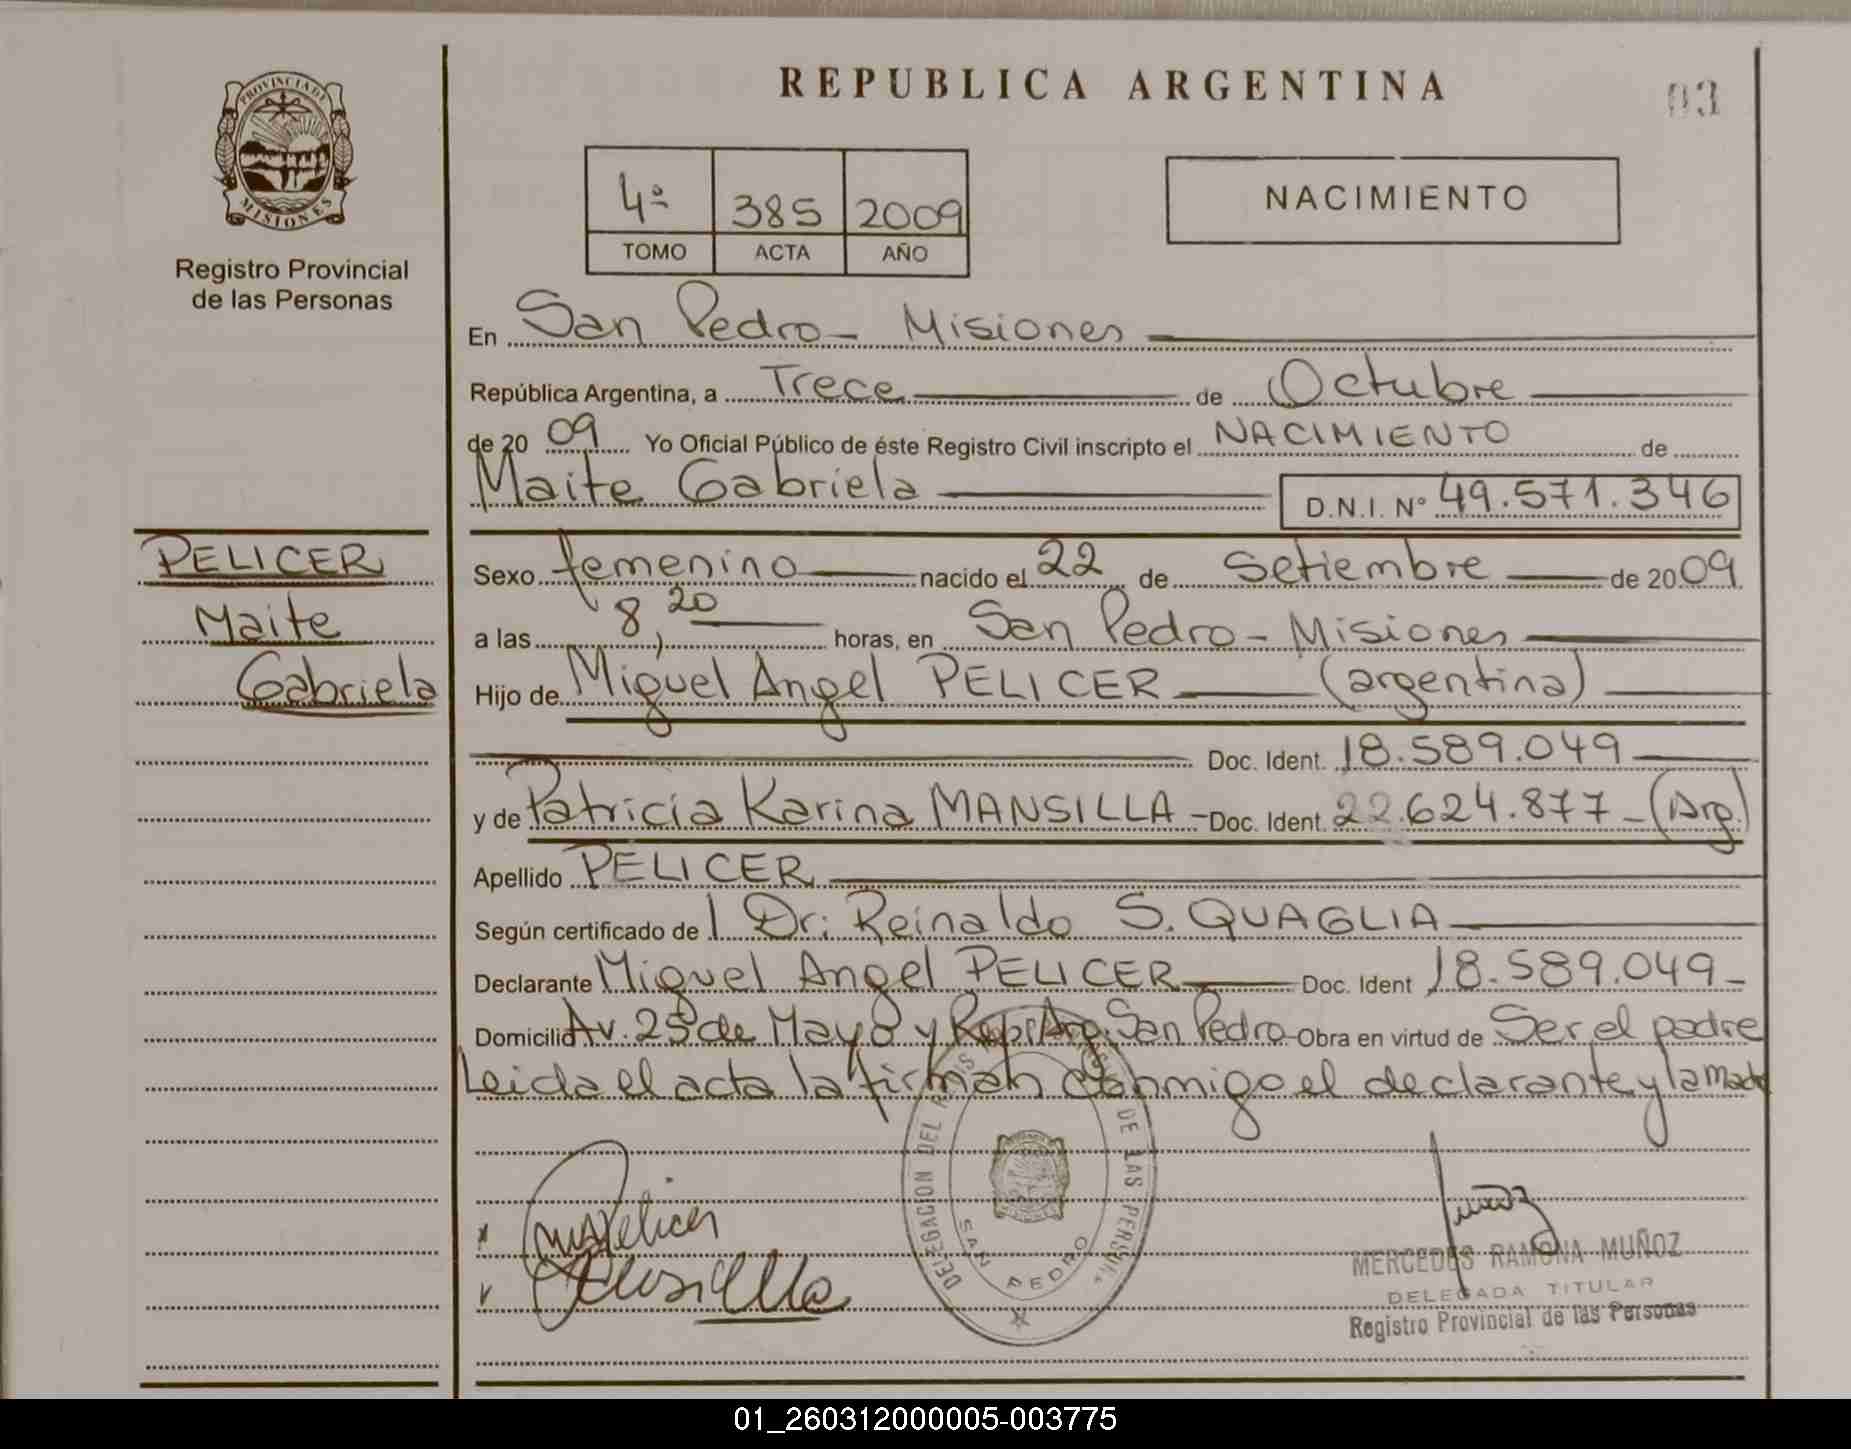 REPUBLICA ARGENTINA
03
PROVINCIA DE
MISIONES
Registro Provincial
de las Personas
4ª 385 2009
TOMO ACTA AÑO
NACIMIENTO
En San Pedro - Misiones
República Argentina, a Trece de Octubre
de 20 09 Yo Oficial Público de éste Registro Civil inscripto el NACIMIENTO de
Maite Gabriela D.N.I. Nº 49.571.346
PELICER
Maite
Gabriela
Sexo femenino nacido el 22 de Setiembre de 20 09
a las 8,20 horas, en San Pedro - Misiones
Hijo de Miguel Angel PELICER (argentina)
Doc. Ident. 18.589.049
y de Patricia Karina MANSILLA - Doc. Ident. 22.624.877 - (Arg.)
Apellido PELICER
Según certificado de Dr. Reinaldo S. QUAGLIA
Declarante Miguel Angel PELICER Doc. Ident 18.589.049 -
Domicilio Av. 25 de Mayo y Rep. Arg. San Pedro - Obra en virtud de Ser el padre
Leida el acta la firman conmigo el declarante y la madre
DELEGACION DEL REGISTRO DE LAS PERSONAS
SAN PEDRO
Pelicer
Mansilla
MERCEDES RAMONA MUÑOZ
DELEGADA TITULAR
Registro Provincial de las Personas
01_260312000005-003775